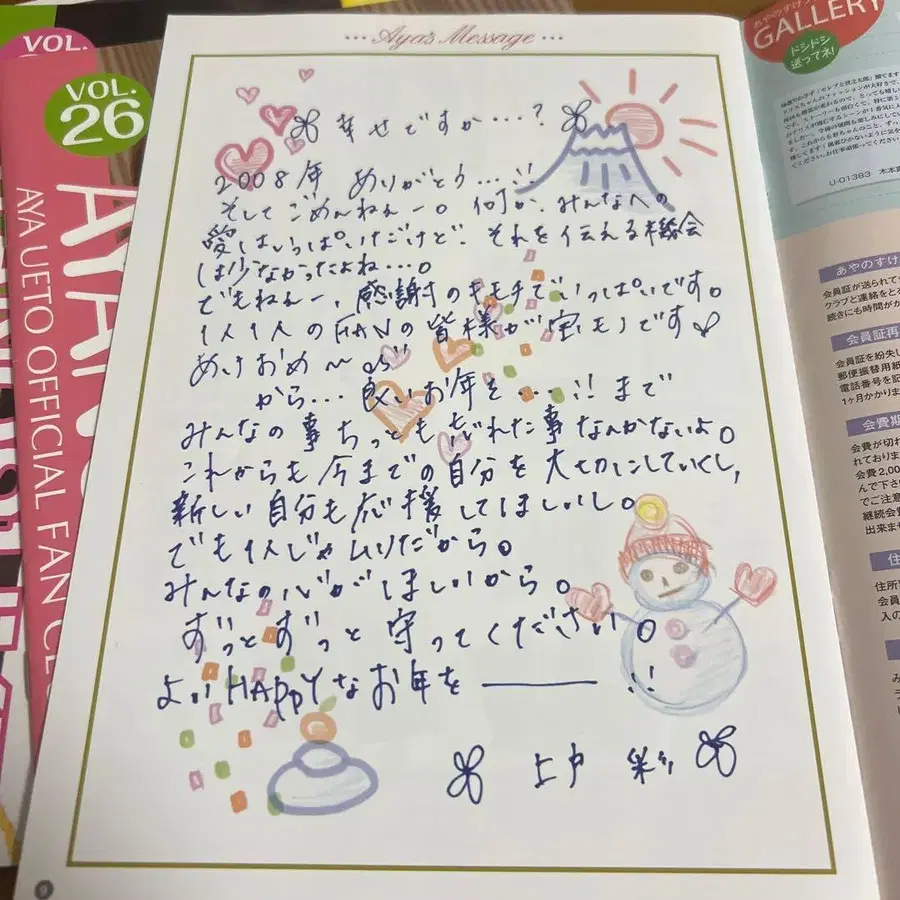 VOL.
VOL.
26
AYA UETO OFFICIAL FAN CL
… Aya's Message …
幸せですか…?
2008年 ありがとう…!!
そしてごめんねぇー。何か、みんなへの
愛はいっぱいだけど、それを伝える機会
は少なかったよね…。
でもねぇー、感謝のキモチでいっぱいです。
1人1人のFANの皆様が宝モノです
あけおめ〜
から… 良いお年を…!! まで
みんなの事ちっとも忘れた事なんかないよ。
これからも今までの自分を大切にしていくし,
新しい自分も応援してほしいし。
でも1人じゃムリだから。
みんなの心がほしいから。
ずっとずっと守ってください。
よいHAPPYなお年を――!!
上戸 彩
9
GALLERY
ドシドシ
送ってネ!
U-01383 木本
あやのすけ
会員証が送られて
クラブと連絡をと
続きにも時間がか
会員証再
会員証を紛失し
郵便振替用紙
電話番号を記
1ヶ月かかりま
会費期
会費が切れ
れておりま
会費2,00
んで下さい
でご注意
継続会費
出来ませ
住所
会員
入の